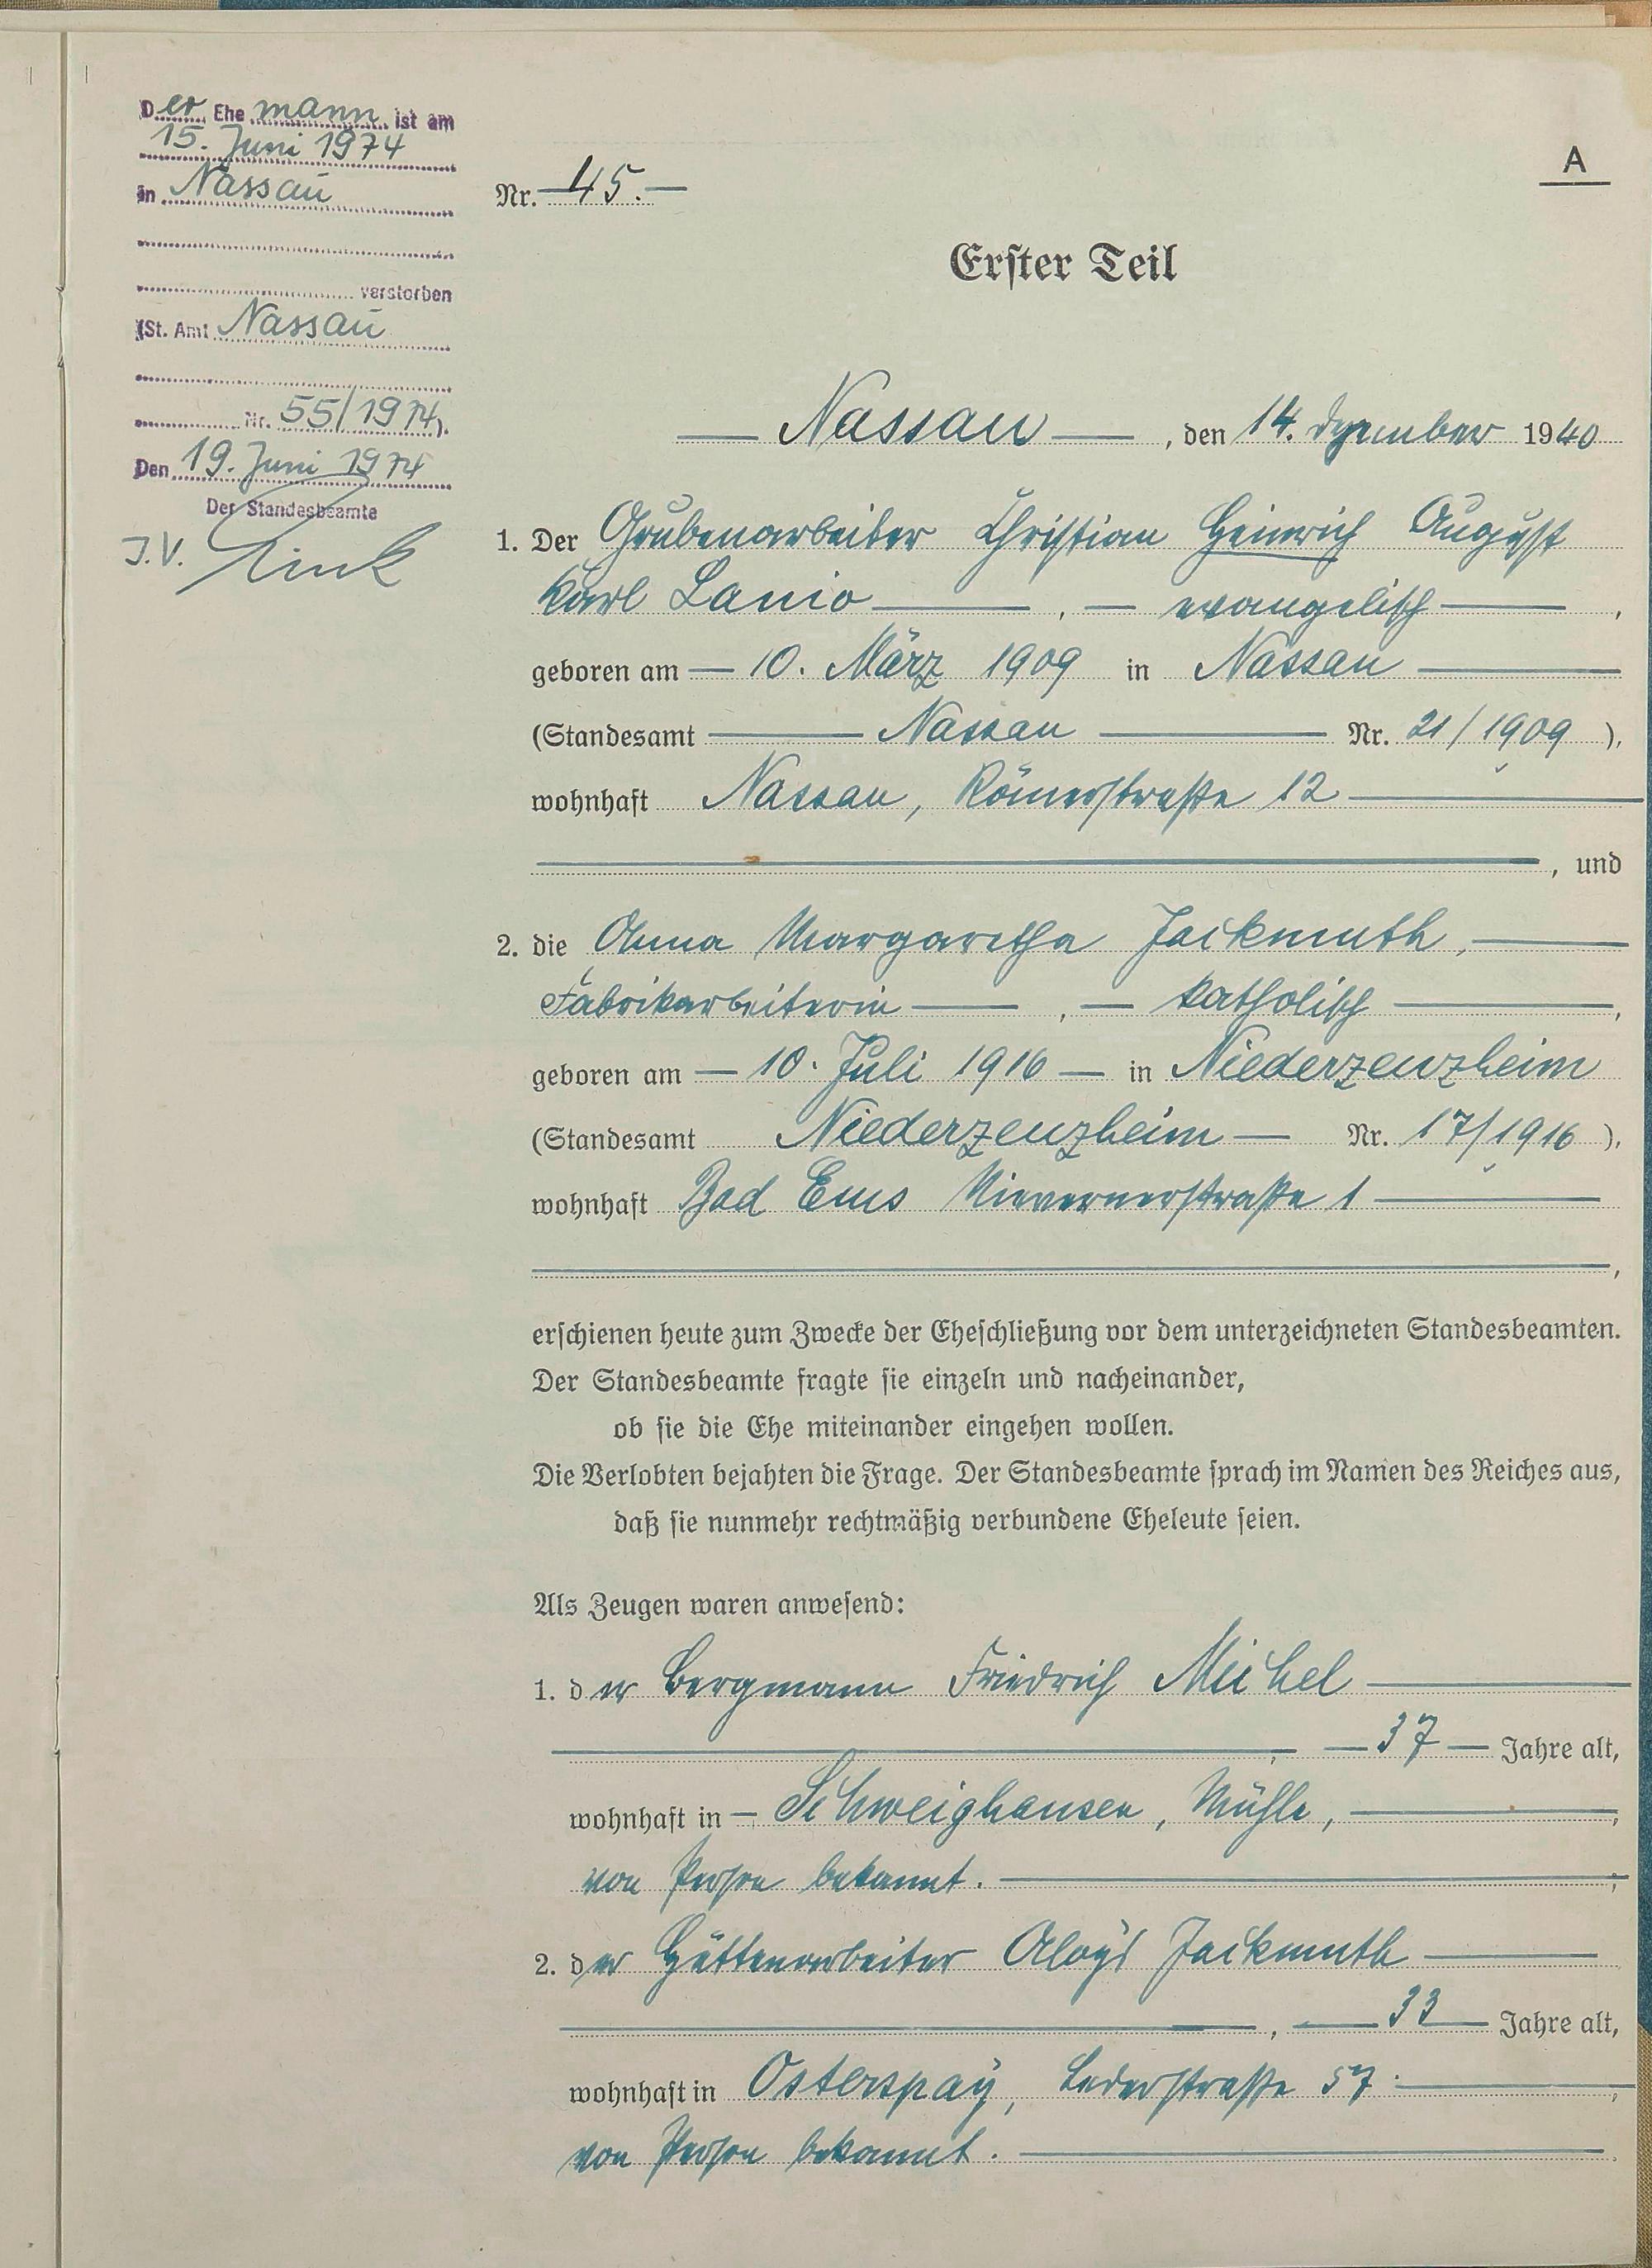 Der Ehemann ist am
15. Juni 1974
in Nassau
verstorben
(St. Amt Nassau
Nr. 55/1974).
Den 19. Juni 1974
Der Standesbeamte
J.V. Link
A
Nr. 45.
Erster Teil
Nassau, den 14. Dezember 1940
1. Der Grubenarbeiter Christian Heinrich August
Karl Lanio, evangelisch,
geboren am 10. März 1909 in Nassau
(Standesamt Nassau Nr. 21/1909),
wohnhaft Nassau, Römerstraße 12
, und
2. die Anna Margaretha Jackmuth,
Fabrikarbeiterin, katholisch,
geboren am 10. Juli 1916 in Niederzeuzheim
(Standesamt Niederzeuzheim Nr. 17/1916),
wohnhaft Bad Ems Nievernerstraße 1
,
erschienen heute zum Zwecke der Eheschließung vor dem unterzeichneten Standesbeamten.
Der Standesbeamte fragte sie einzeln und nacheinander,
ob sie die Ehe miteinander eingehen wollen.
Die Verlobten bejahten die Frage. Der Standesbeamte sprach im Namen des Reiches aus,
daß sie nunmehr rechtmäßig verbundene Eheleute seien.
Als Zeugen waren anwesend:
1. der Bergmann Friedrich Michel
, 37 Jahre alt,
wohnhaft in Schweighausen, Mühle,
von Person bekannt.
2. der Hüttenarbeiter Aloys Jackmuth
, 33 Jahre alt,
wohnhaft in Osterspay, Lederstraße 57.
von Person bekannt.